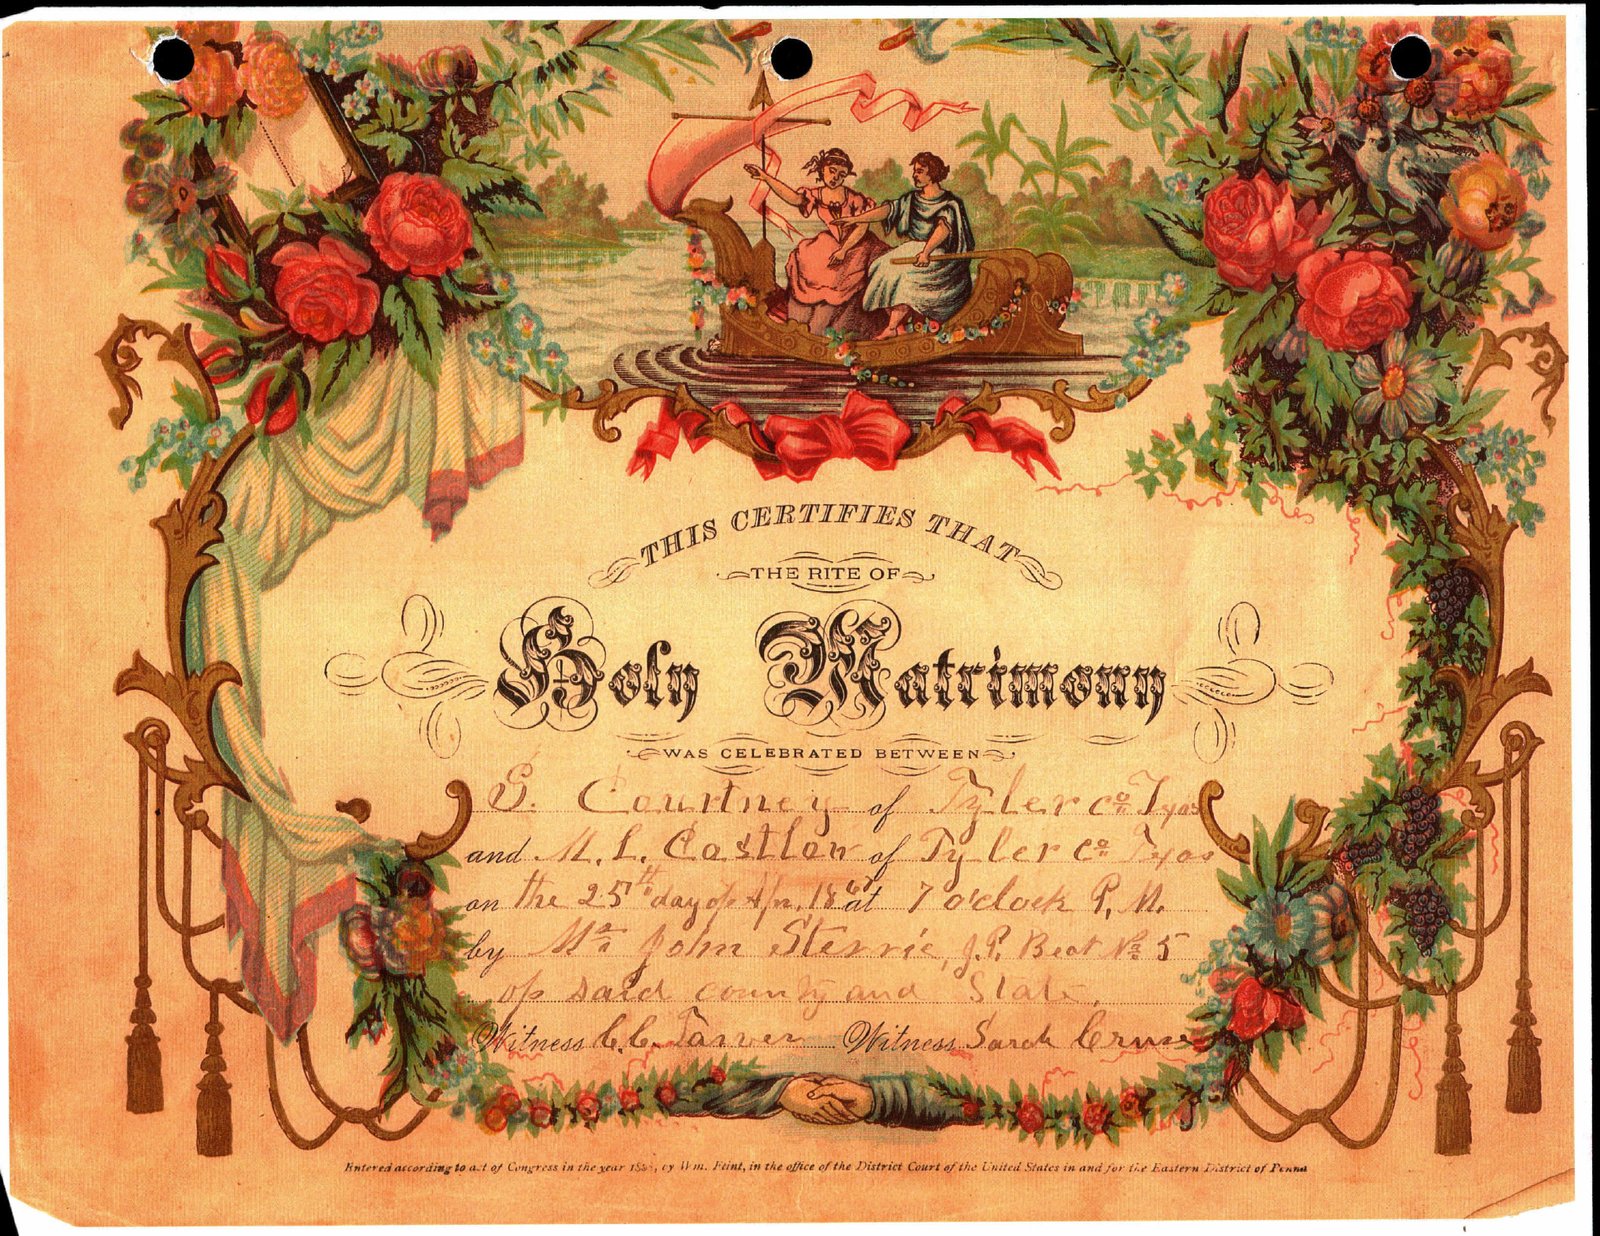 THIS CERTIFIES THAT
THE RITE OF
Holy Matrimony
WAS CELEBRATED BETWEEN
G. Courtney of Tyler Co Texas
and M. L. Costlow of Tyler Co Texas
on the 25th day of Apr. 1867 at 7 o'clock P. M.
by Mr John Sterrie, J. P. Beat No 5
of said county and State.
Witness C. C. Tarver Witness Sarah Cruse
Entered according to act of Congress in the year by Wm. Flint, in the office of the District Court of the United States in and for the Eastern District of Penna